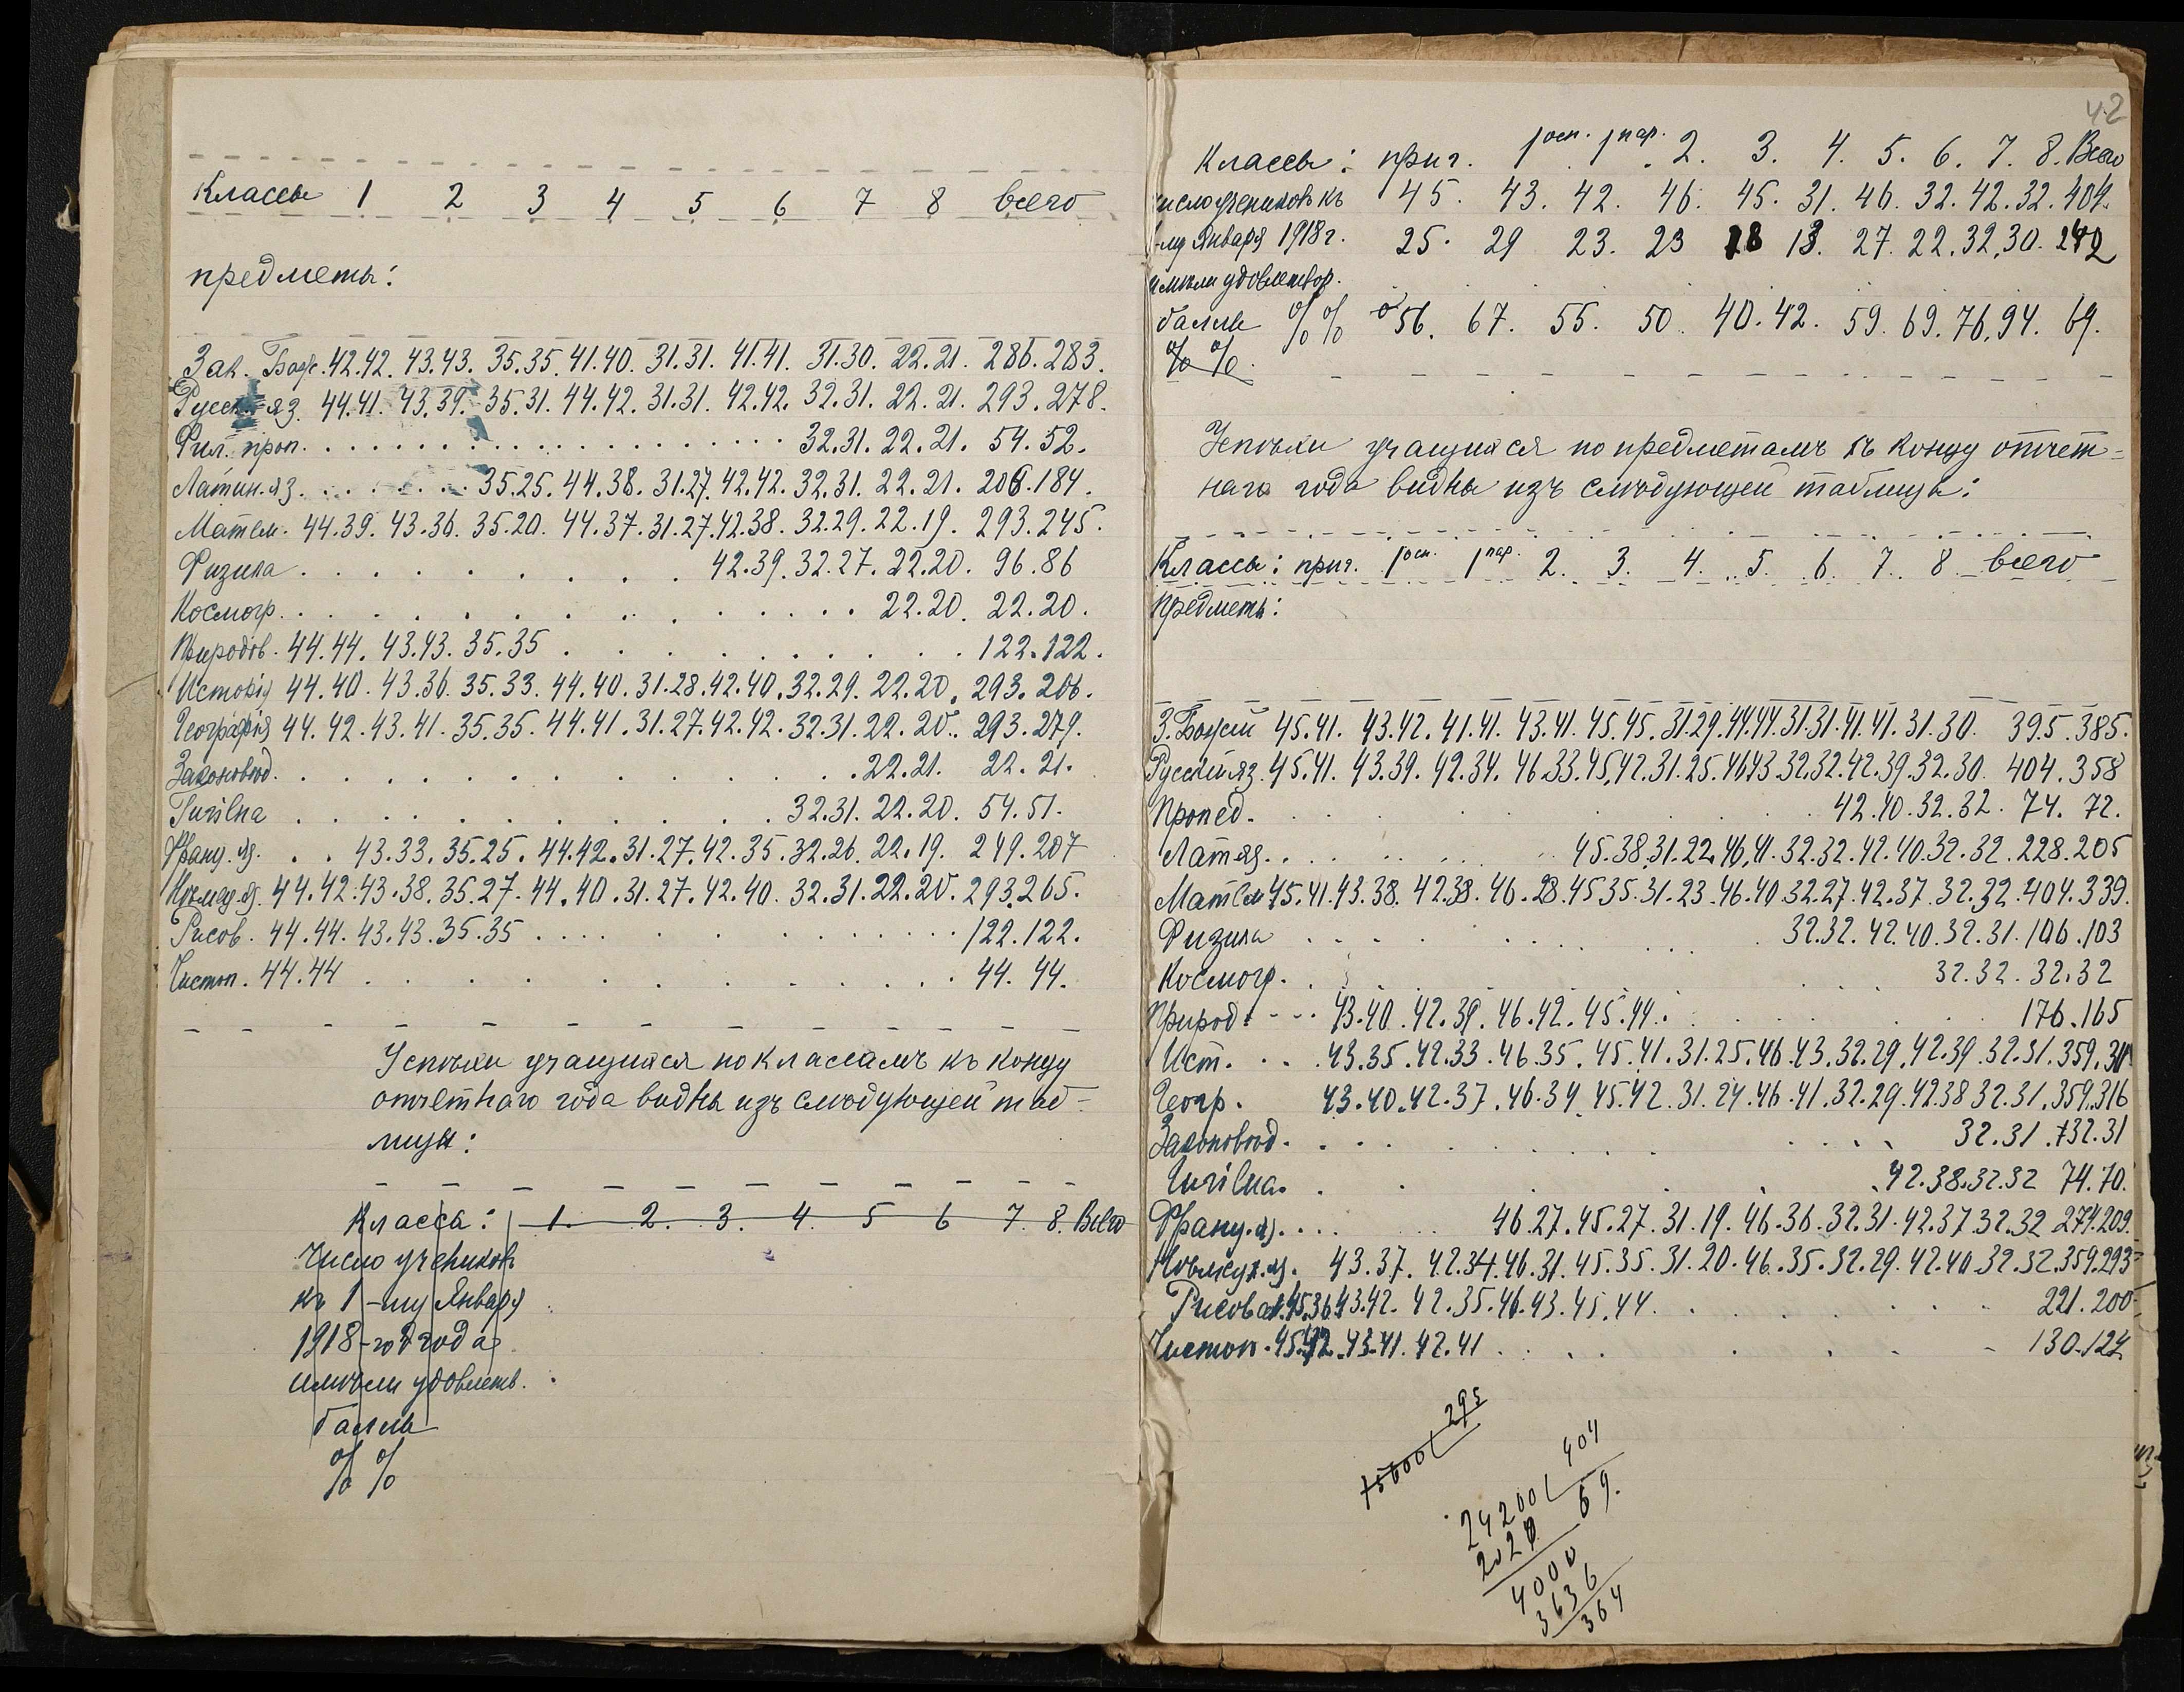 Классы 1 2 3 4 5 6 7 8 всего
предметы:
Зак. Бож. 42.42. 43.43. 35.35. 41.40. 31.31. 41.41. 31.30. 22.21. 286.283.
Русск. яз. 44.41. 43.39. 35.31. 44.42. 31.31. 42.42. 32.31. 22.21. 293.278.
Фил. проп. 32.31. 22.21. 54.52.
Латин. яз. 35.25. 44.38. 31.27. 42.42. 32.31. 22.21. 206.184.
Матем. 44.39. 43.36. 35.20. 44.37. 31.27. 42.38. 32.29. 22.19. 293.245.
Физика 42.39. 32.27. 22.20. 96.86
Космогр. 22.20. 22.20.
Природов. 44.44. 43.43. 35.35 122.122.
Исторія 44.40. 43.36. 35.33. 44.40. 31.28. 42.40. 32.29. 22.20. 293.206.
Географія 44.42. 43.41. 35.35. 44.41. 31.27. 42.42. 32.31. 22.20. 293.279.
Законовѣд. 22.21. 22.21.
Гигіена 32.31. 22.20. 54.51.
Франц. яз. 43.33. 35.25. 44.42. 31.27. 42.35. 32.26. 22.19. 249.207
Нѣмец. яз. 44.42. 43.38. 35.27. 44.40. 31.27. 42.40. 32.31. 22.20. 293.265.
Рисов. 44.44. 43.43. 35.35 122.122.
Чистоп. 44.44 44.44.
Успѣхи учащихся по классамъ къ концу
отчетнаго года видны изъ слѣдующей таб-
лицы:
Класса: 1. 2. 3. 4. 5 6 7 8. Всего
Число учениковъ
къ 1-му Января
1918-го года
имѣли удовлетв.
баллы
% %
42
Классы: приг. 1 осн. 1 пар. 2. 3. 4. 5. 6. 7. 8. Всего
число учениковъ къ 45. 43. 42. 46. 45. 31. 46. 32. 42. 32. 404.
1-му Января 1918 г. 25. 29 23. 23 18 13. 27. 22. 32. 30. 242
имѣли удовлетвор.
баллы %% 56. 67. 55. 50. 40. 42. 59. 69. 76. 94. 69.
% %
Успѣхи учащихся по предметамъ къ концу отчет-
наго года видны изъ слѣдующей таблицы:
Классы: приг. 1 осн. 1 пар. 2. 3. 4. 5. 6. 7. 8 всего
Предметы:
З. Божій 45.41. 43.42. 41.41. 43.41. 45.45. 31.29. 44.44. 31.31. 41.41. 31.30. 395.385.
Русскій яз. 45.41. 43.39. 42.34. 46.33. 45.42. 31.25. 46.43. 32.32. 42.39. 32.30. 404.358
Пропед. 42.40. 32.32. 74. 72.
Лат. яз. 45.38. 31.22. 46.41. 32.32. 42.40. 32.32. 228.205
Матем. 45.41. 43.38. 42.38. 46.28. 45.35. 31.23. 46.40. 32.27. 42.37. 32.32. 404.339.
Физика 32.32. 42.40. 32.31. 106.103
Космогр. 32.32. 32.32
Природ. 43.40. 42.39. 46.42. 45.44. 176.165
Ист. 43.35. 42.33. 46.35. 45.41. 31.25. 46.43. 32.29. 42.39. 32.31. 359.311
Геогр. 43.40. 42.37. 46.34. 45.42. 31.24. 46.41. 32.29. 42.38 32.31. 359.316
Законовѣд. 32.31. 32.31
Гигіена. 42.38. 32.32 74.70.
Франц. яз. 46.27. 45.27. 31.19. 46.36. 32.31. 42.37. 32.32 274.209.
Нѣмецк. яз. 43.37. 42.34. 46.31. 45.35. 31.20. 46.35. 32.29. 42.40. 32.32. 359.293
Рисован. 45.36. 43.42. 42.35. 46.43. 45.44. 221.200
Чистоп. 45.42. 43.41. 42.41 130.124
295
75000
24200 404
2020 69.
4000
3636
364